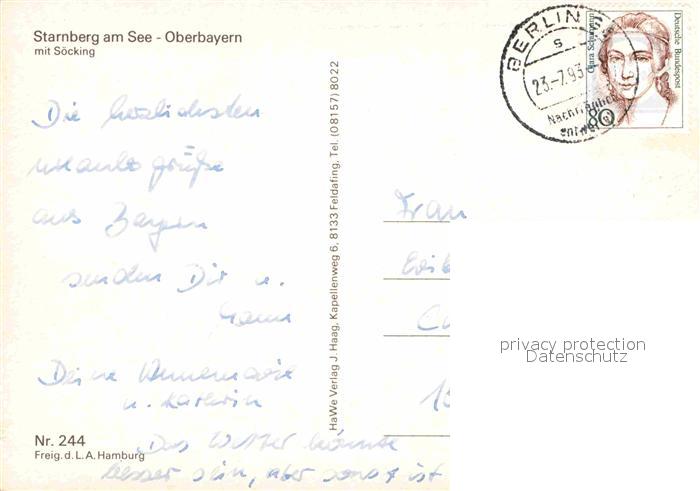 Starnberg am See - Oberbayern
mit Söcking
Die herzlichsten
Urlaubsgrüße
aus Bayern
senden Dir u.
Deine Annemarie
u. Kathrin
Das Wetter könnte
besser sein, aber sonst ist
Nr. 244
Freig.d.L.A.Hamburg
HaWe Verlag J. Haag, Kapellenweg 6, 8133 Feldafing, Tel. (08157) 8022
BERLIN
s
23.-7.93
Nachträglich
entwertet
Clara Schumann
Deutsche Bundespost
80
Frau
privacy protection
Datenschutz